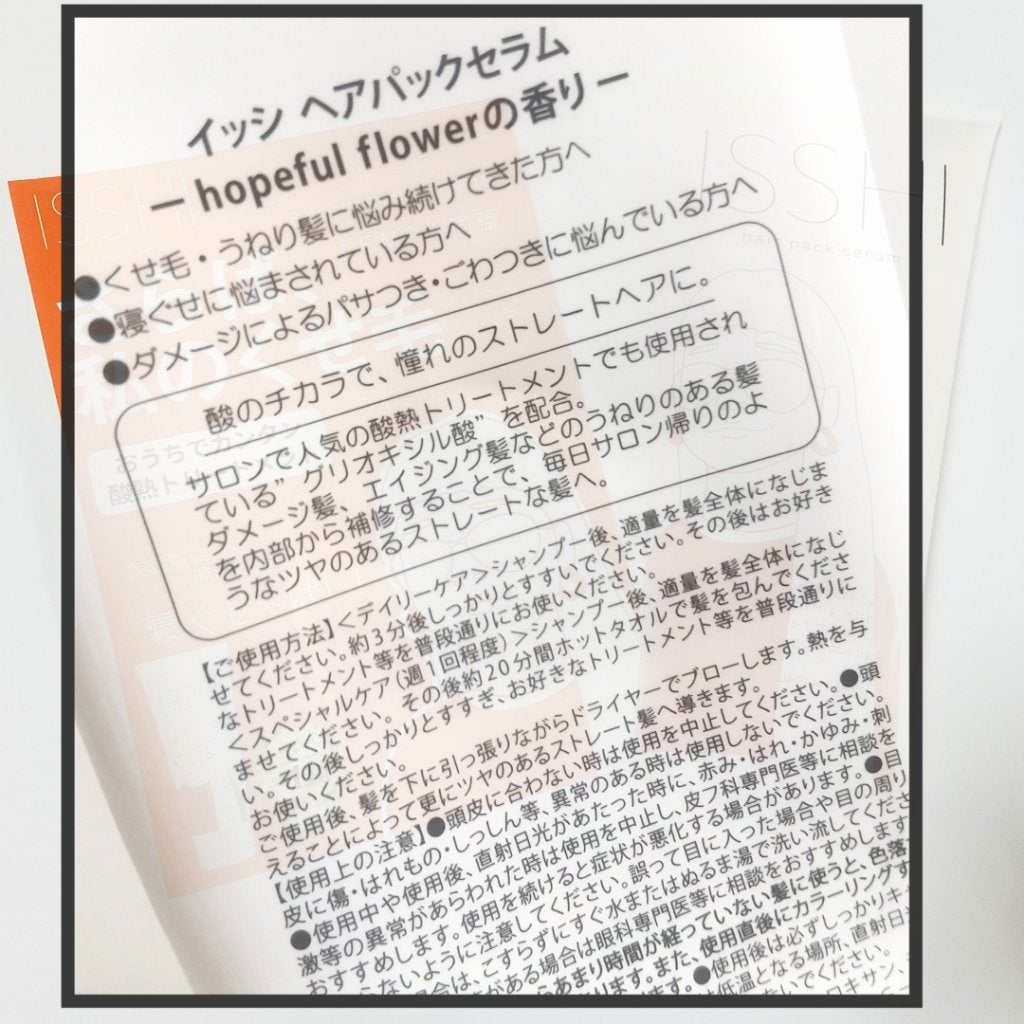 イッシ ヘアパックセラム
ー hopeful flowerの香り ー
●くせ毛・うねり髪に悩み続けてきた方へ
●寝ぐせに悩まされている方へ
●ダメージによるパサつき・ごわつきに悩んでいる方へ
酸のチカラで、憧れのストレートヘアに。
サロンで人気の酸熱トリートメントでも使用され
ている"グリオキシル酸"を配合。
ダメージ髪、エイジング髪などのうねりのある髪
を内部から補修することで、毎日サロン帰りのよ
うなツヤのあるストレートな髪へ。
【ご使用方法】＜デイリーケア＞シャンプー後、適量を髪全体になじま
せてください。約3分後しっかりとすすいでください。その後はお好き
なトリートメント等を普段通りにお使いください。
＜スペシャルケア（週1回程度）＞シャンプー後、適量を髪全体になじ
ませてください。その後約20分間ホットタオルで髪を包んでくださ
い。その後しっかりとすすぎ、お好きなトリートメント等を普段通りに
お使いください。
ご使用後、髪を下に引っ張りながらドライヤーでブローします。熱を与
えることによって更にツヤのあるストレート髪へ導きます。
【使用上の注意】●頭皮に合わない時は使用を中止してください。●頭
皮に傷・はれもの・しっしん等、異常のある時は使用しないでください。
●使用中や使用後、直射日光があたった時に、赤み・はれ・かゆみ・刺
激等の異常があらわれた時は使用を中止し、皮フ科専門医等に相談を
おすすめします。使用を続けると症状が悪化する場合があります。●目
らないように注意してください。誤って目に入った場合や目の周り
場合は、こすらずにすぐ水またはぬるま湯で洗い流してくださ
がある場合は眼科専門医等に相談をおすすめします
あまり時間が経っていない髪に使うと、色落
ります。また、使用直後にカラーリングす
ます。●使用後は必ずしっかりキ
低温となる場所、直射日
でください。
ISSHI
hair pack serum
ISSHI
さらば、
私のくせ毛
おうちでカンタン